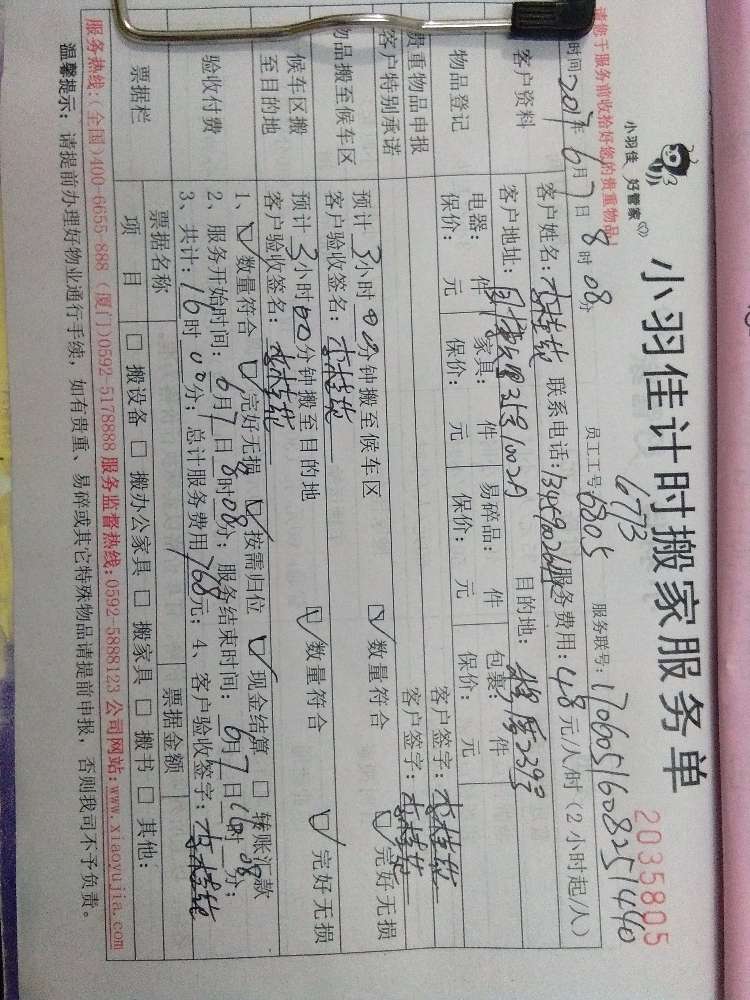 小羽佳 好管家
小羽佳计时搬家服务单
2035805
请您于服务前收拾好您的贵重物品!
6773
时间:2017年6月7日8时08分 员工工号:6805 服务联号:1706051608251440
客户资料 客户姓名: 联系电话: 服务费用:48元/人/时(2小时起/人)
客户地址: 目的地:
物品登记 电器: 件 家具: 件 易碎品: 件 包裹: 件
保价: 元 保价: 元 保价: 元 保价: 元
贵重物品申报 客户签字:
客户特别承诺 客户签字:
物品搬至候车区 预计3小时00分钟搬至候车区 ☑数量符合 ☑完好无损
客户验收签名:
候车区搬至目的地 预计3小时00分钟搬至目的地 ☑数量符合 ☑完好无损
客户验收签名:
验收付费 1、☑数量符合 ☑完好无损 ☑按需归位 ☑现金结算 □转账汇款
2、服务开始时间:6月7日8时08分;服务结束时间:6月7日16时08分;
3、共计:16时00分;总计服务费用768元;4、客户验收签字:
票据栏 票据名称 票据金额
项目 □搬设备 □搬办公家具 □搬家具 □搬书 □其他:
服务热线:(全国)400-6655-888(厦门)0592-5178888 服务监督热线:0592-5888123 公司网站:www.xiaoyujia.com
温馨提示:请提前办理好物业通行手续,如有贵重、易碎或其它特殊物品请提前申报,否则我司不予负责。